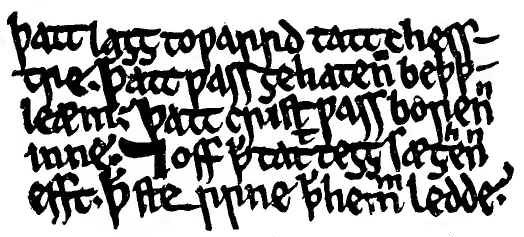 þatt lagg toƿarrd tatt chess-
tre. Þatt ƿass gehatenn beþþ-
leæm. Þatt crist ƿass borenn
inne. ⁊ off þ tatt tegg sæghenn
efft. þ ste rrne þ hemm ledde.